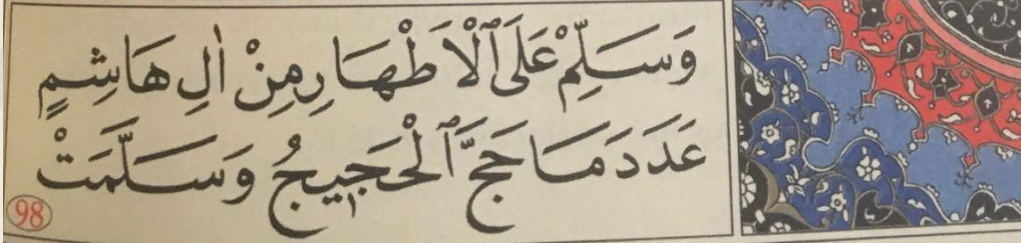 وَسَلِّمْ عَلَى ٱلْاَطْهَارِ مِنْ اٰلِ هَاشِمٍ
عَدَدَ مَا حَجَّ ٱلْحَجِيجُ وَسَلَّمَتْ
98